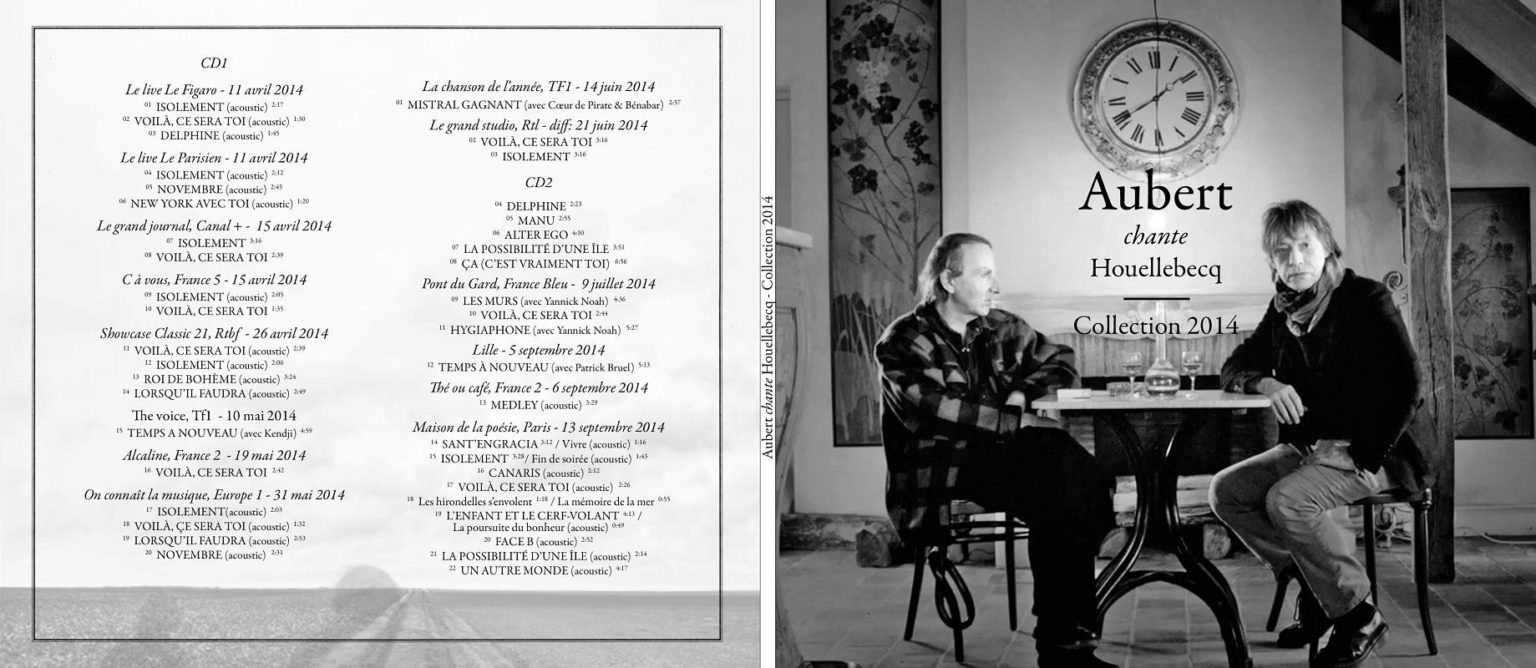 CD1
Le live Le Figaro - 11 avril 2014
01 ISOLEMENT (acoustic) 2:17
02 VOILÀ, CE SERA TOI (acoustic) 1:30
03 DELPHINE (acoustic) 1:45
Le live Le Parisien - 11 avril 2014
04 ISOLEMENT (acoustic) 2:12
05 NOVEMBRE (acoustic) 2:45
06 NEW YORK AVEC TOI (acoustic) 1:20
Le grand journal, Canal + - 15 avril 2014
07 ISOLEMENT 3:16
08 VOILÀ, CE SERA TOI 2:39
C à vous, France 5 - 15 avril 2014
09 ISOLEMENT (acoustic) 2:05
10 VOILÀ, CE SERA TOI (acoustic) 1:35
Showcase Classic 21, Rtbf - 26 avril 2014
11 VOILÀ, CE SERA TOI (acoustic) 2:39
12 ISOLEMENT (acoustic) 2:06
13 ROI DE BOHÈME (acoustic) 3:24
14 LORSQU'IL FAUDRA (acoustic) 2:49
The voice, Tf1 - 10 mai 2014
15 TEMPS A NOUVEAU (avec Kendji) 4:59
Alcaline, France 2 - 19 mai 2014
16 VOILÀ, CE SERA TOI 2:42
On connaît la musique, Europe 1 - 31 mai 2014
17 ISOLEMENT(acoustic) 2:03
18 VOILÀ, ÇE SERA TOI (acoustic) 1:32
19 LORSQU'IL FAUDRA (acoustic) 2:53
20 NOVEMBRE (acoustic) 2:31
La chanson de l'année, TF1 - 14 juin 2014
01 MISTRAL GAGNANT (avec Cœur de Pirate & Bénabar) 2:57
Le grand studio, Rtl - diff: 21 juin 2014
02 VOILÀ, CE SERA TOI 3:16
03 ISOLEMENT 3:16
CD2
04 DELPHINE 2:23
05 MANU 2:55
06 ALTER EGO 4:10
07 LA POSSIBILITÉ D'UNE ÎLE 3:51
08 ÇA (C'EST VRAIMENT TOI) 6:56
Pont du Gard, France Bleu - 9 juillet 2014
09 LES MURS (avec Yannick Noah) 4:36
10 VOILÀ, CE SERA TOI 2:44
11 HYGIAPHONE (avec Yannick Noah) 5:27
Lille - 5 septembre 2014
12 TEMPS À NOUVEAU (avec Patrick Bruel) 5:13
Thé ou café, France 2 - 6 septembre 2014
13 MEDLEY (acoustic) 3:29
Maison de la poésie, Paris - 13 septembre 2014
14 SANT'ENGRACIA 3:12 / Vivre (acoustic) 1:16
15 ISOLEMENT 3:28/ Fin de soirée (acoustic) 1:43
16 CANARIS (acoustic) 2:12
17 VOILÀ, CE SERA TOI (acoustic) 2:26
18 Les hirondelles s'envolent 1:18 / La mémoire de la mer 0:55
19 L'ENFANT ET LE CERF-VOLANT 4:13 /
La poursuite du bonheur (acoustic) 0:49
20 FACE B (acoustic) 2:52
21 LA POSSIBILITÉ D'UNE ÎLE (acoustic) 2:14
22 UN AUTRE MONDE (acoustic) 4:17
Aubert chante Houellebecq - Collection 2014
Aubert
chante
Houellebecq
Collection 2014